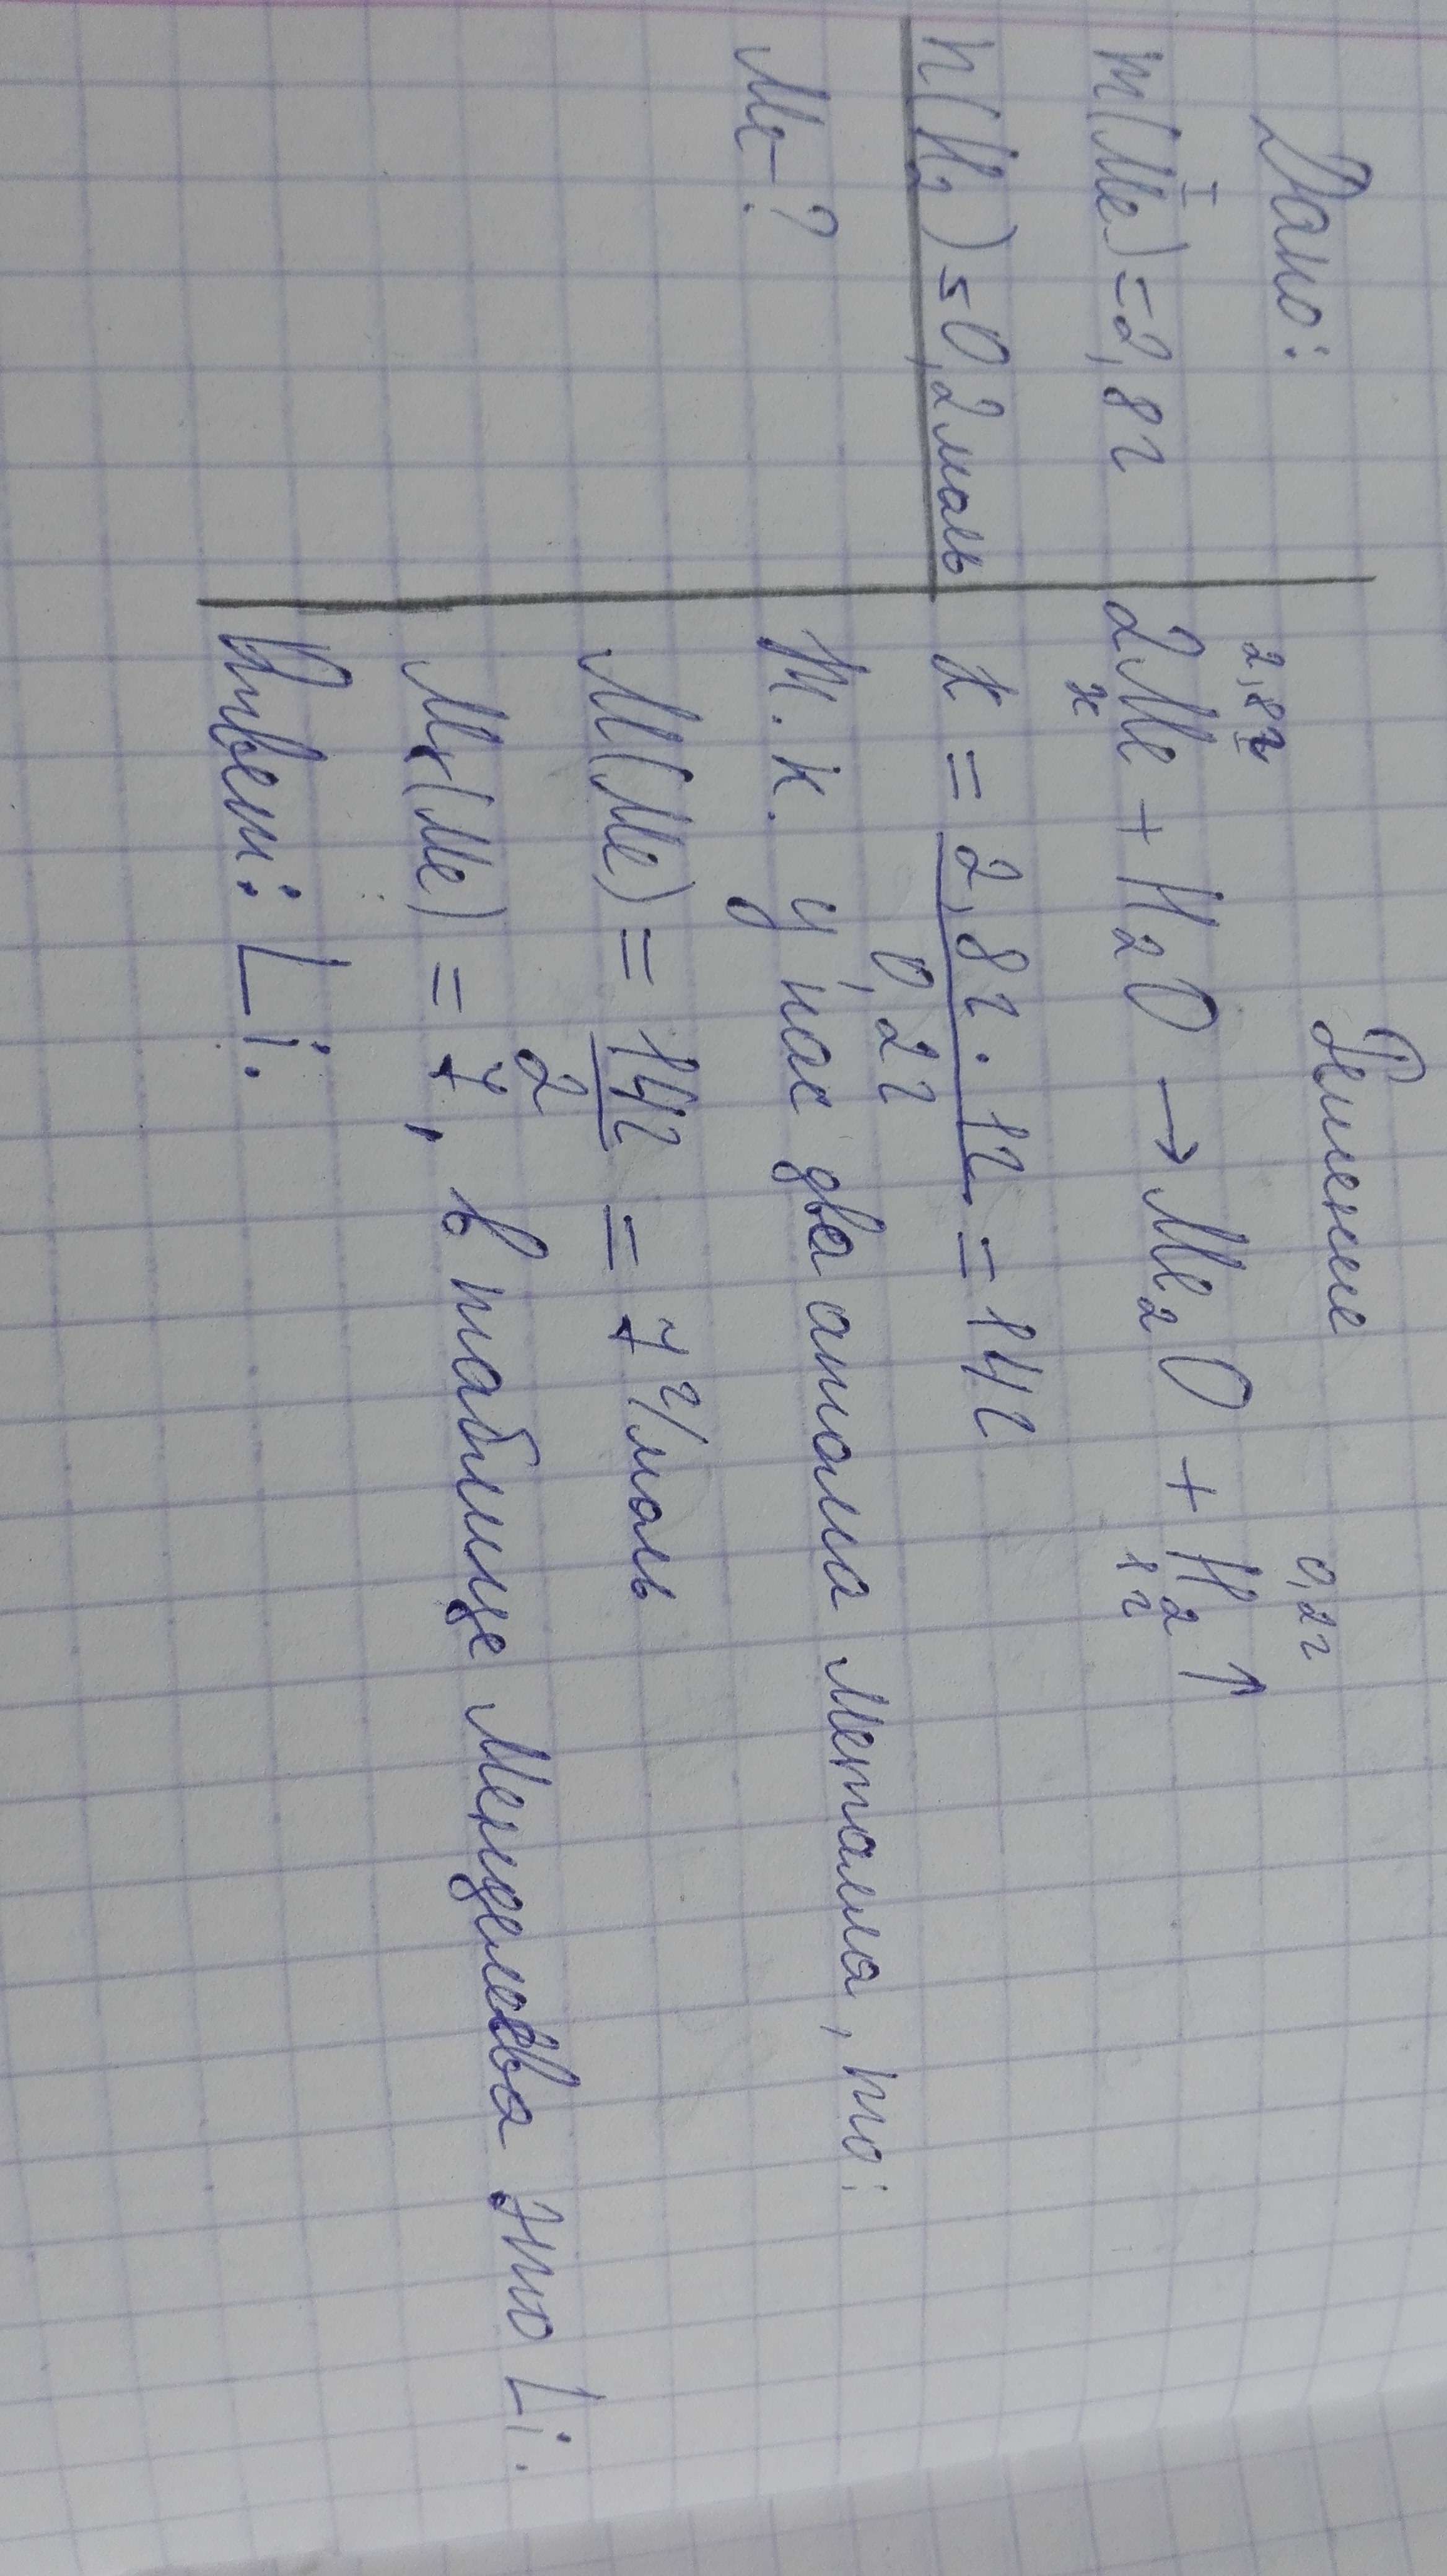 Дано:
m(Me) = 2,8г
I
n(H₂) = 0,2моль
Me - ?
Решение
2,8г 0,2г
2Me + H₂O → Me₂O + H₂↑
x 1г
x = 2,8г · 1г / 0,2г = 14г
Т.к. у нас два атома металла, то:
M(Me) = 14г / 2 = 7 г/моль
Mr(Me) = 7, в таблице Менделеева это Li.
Ответ: Li.